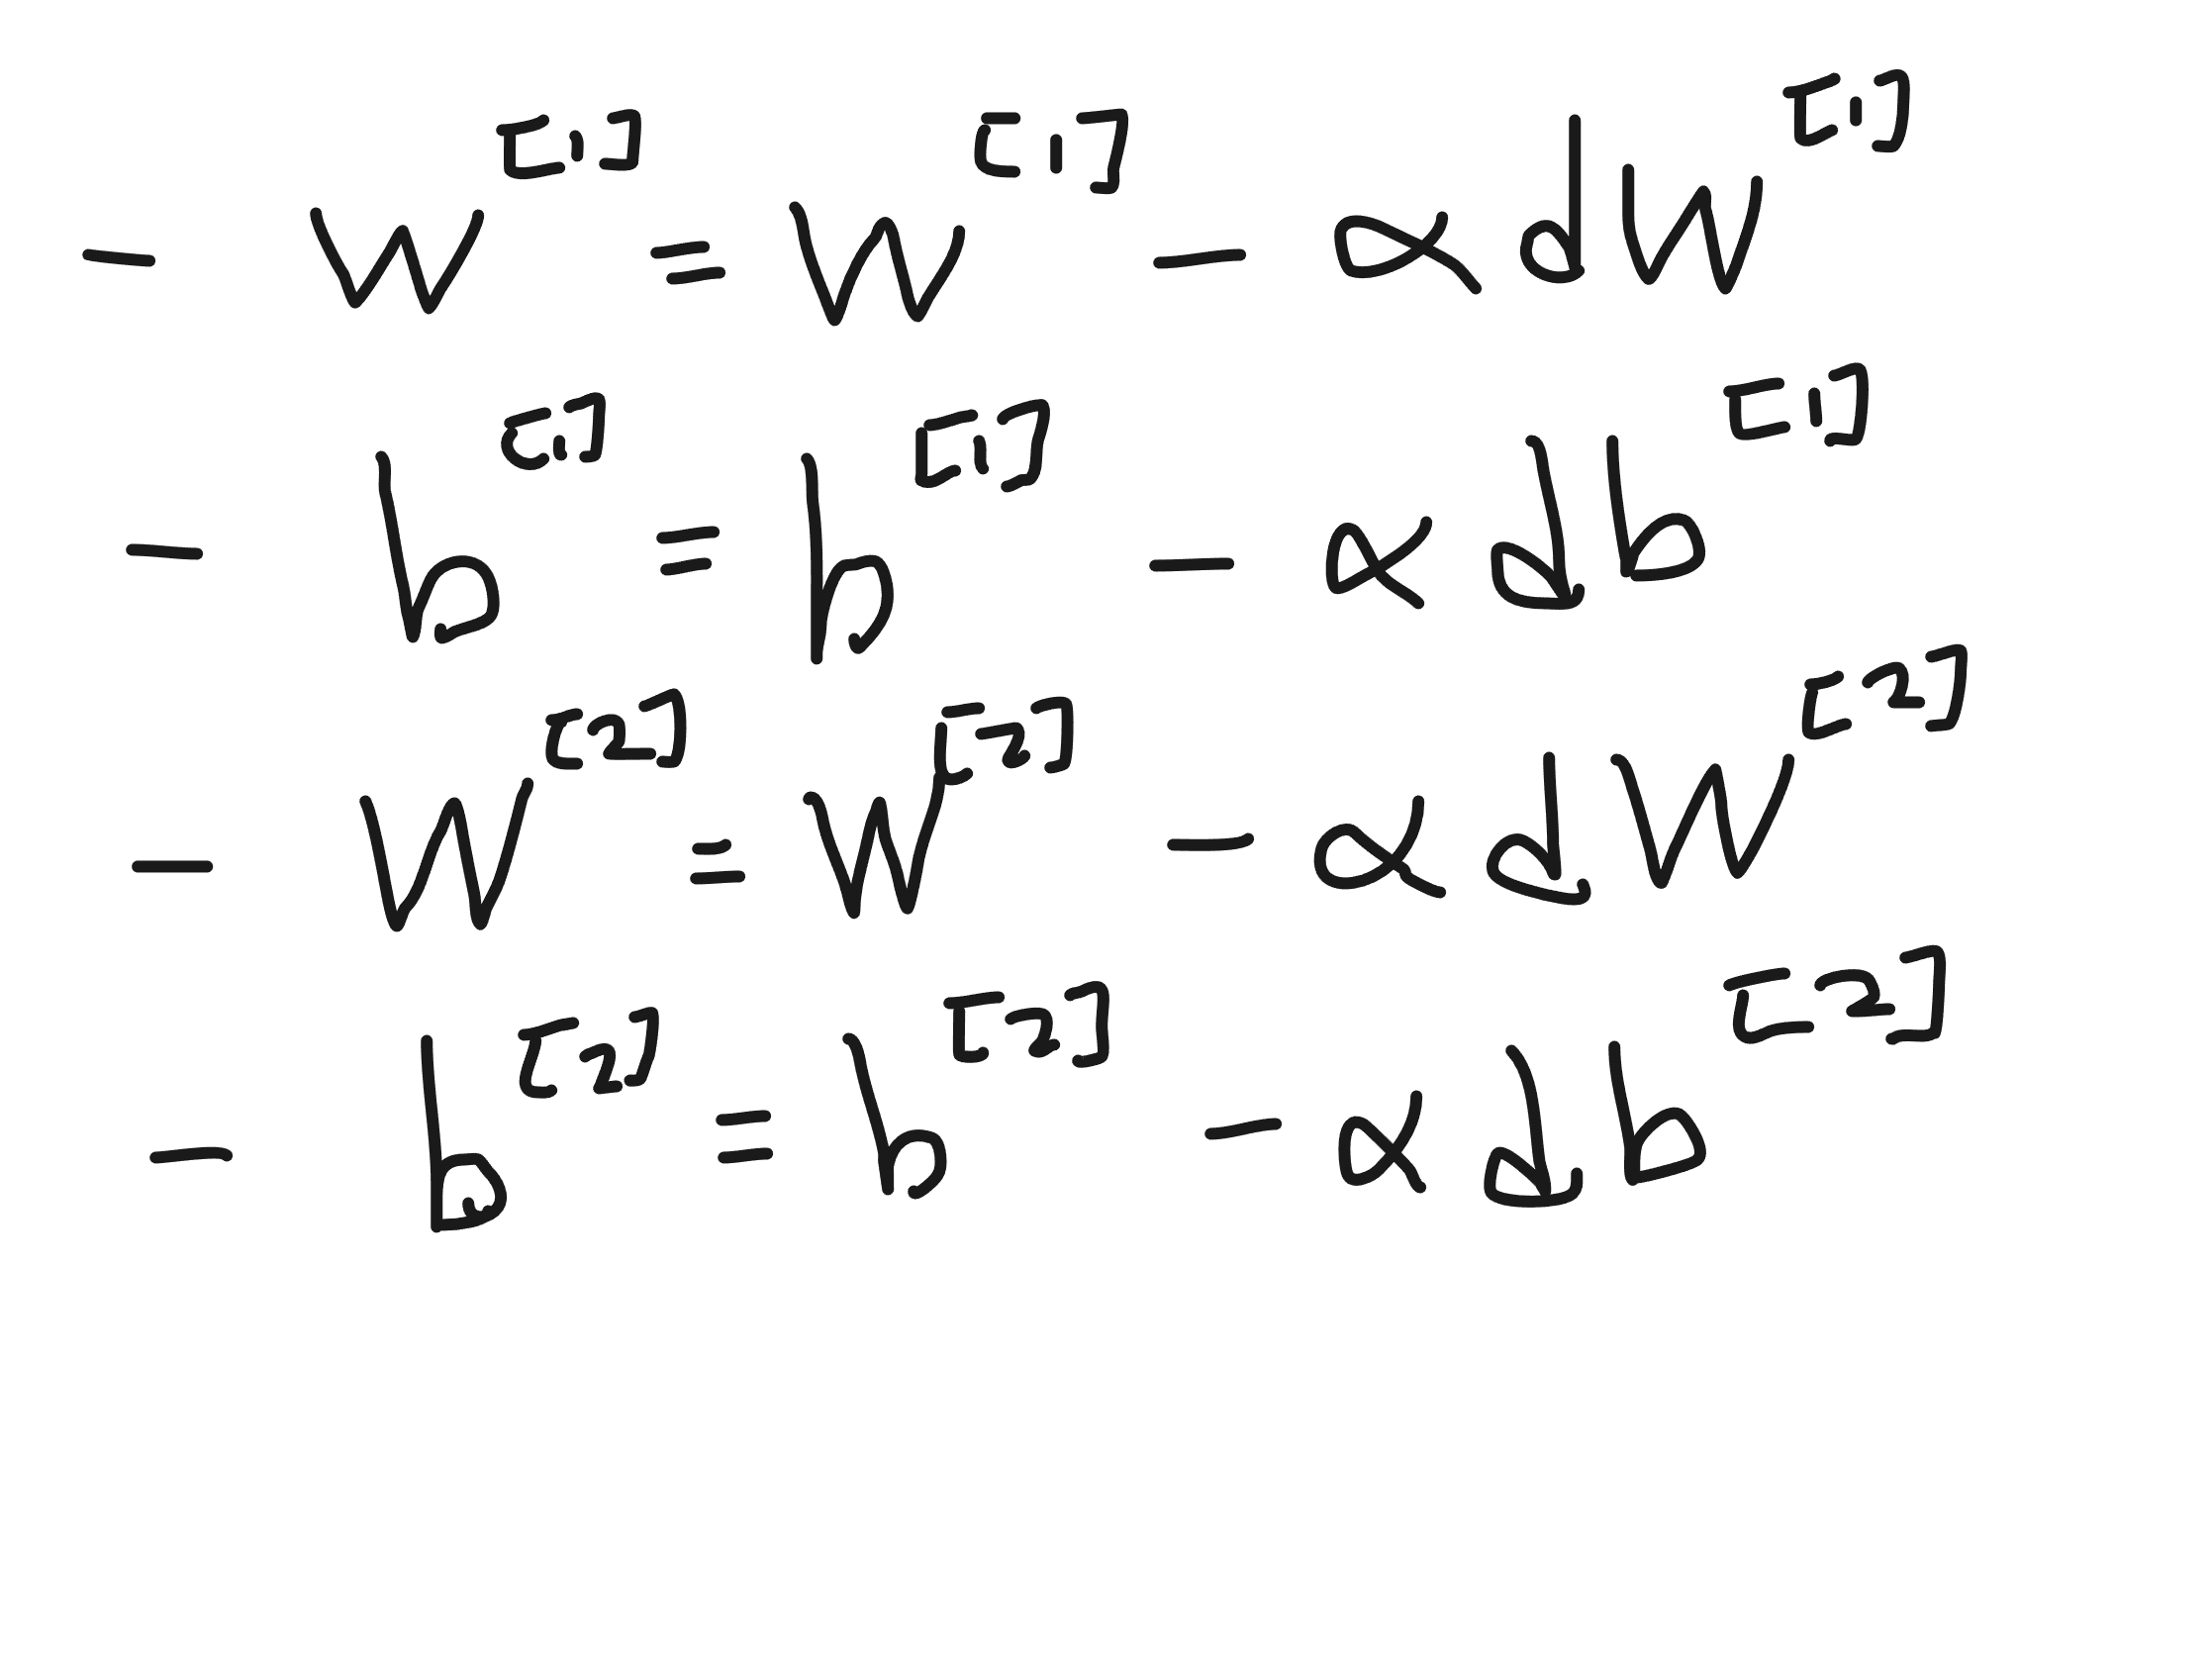 - W^[1] = W^[1] - α dW^[1]
- b^[1] = b^[1] - α db^[1]
- W^[2] = W^[2] - α dW^[2]
- b^[2] = b^[2] - α db^[2]